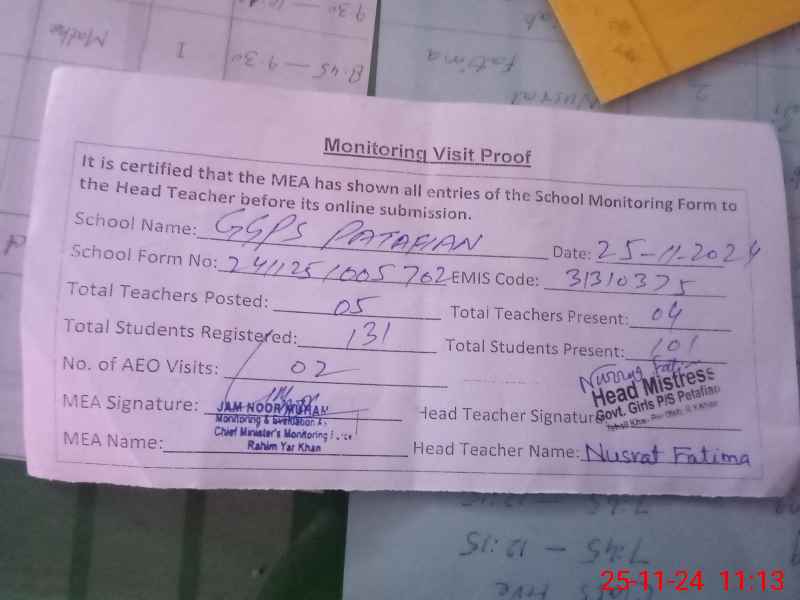 9.30
8.45 – 9.30
I
Maths
Fatima
Nusrat
2
Monitoring Visit Proof
It is certified that the MEA has shown all entries of the School Monitoring Form to
the Head Teacher before its online submission.
School Name: GGPS PATAFIAN Date: 25-11-2024
School Form No: 2411251005702 EMIS Code: 31310375
Total Teachers Posted: 05 Total Teachers Present: 04
Total Students Registered: 131 Total Students Present: 101
No. of AEO Visits: 02
Nusrat Fatima
Head Mistress
Govt. Girls P/S Petafian
MEA Signature: Head Teacher Signature
JAM NOOR
Monitoring & Evaluation
Chief Minister's Monitoring
Rahim Yar Khan
MEA Name: Head Teacher Name: Nusrat Fatima
7:45 – 12:15
25-11-24 11:13